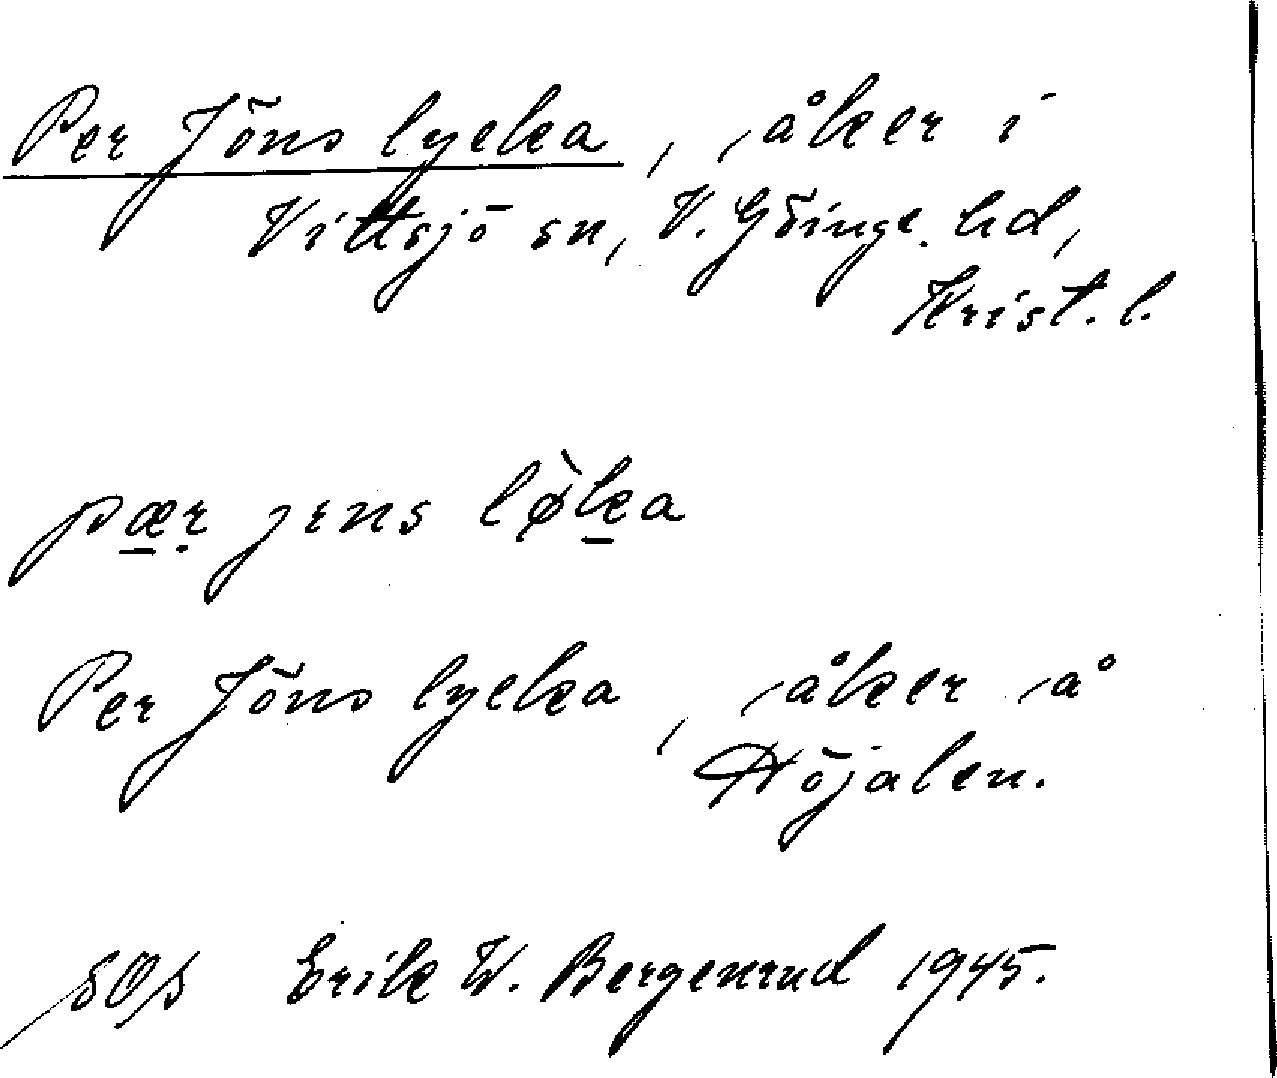 Per Jöns lycka, åker i
Vittsjö sn, V. Göinge hd,
Krist. l.
pær jens løka
Per Jöns lycka, åker å
Höjalen.
Erik W. Bergenrud 1945.